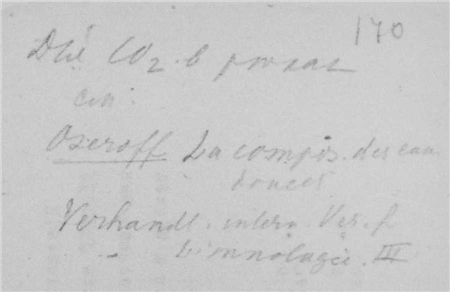 170
CO2 . в
Ozeroff La compos. des eau
douces
Verhandl. intern. Ver. f
Limnologie. III